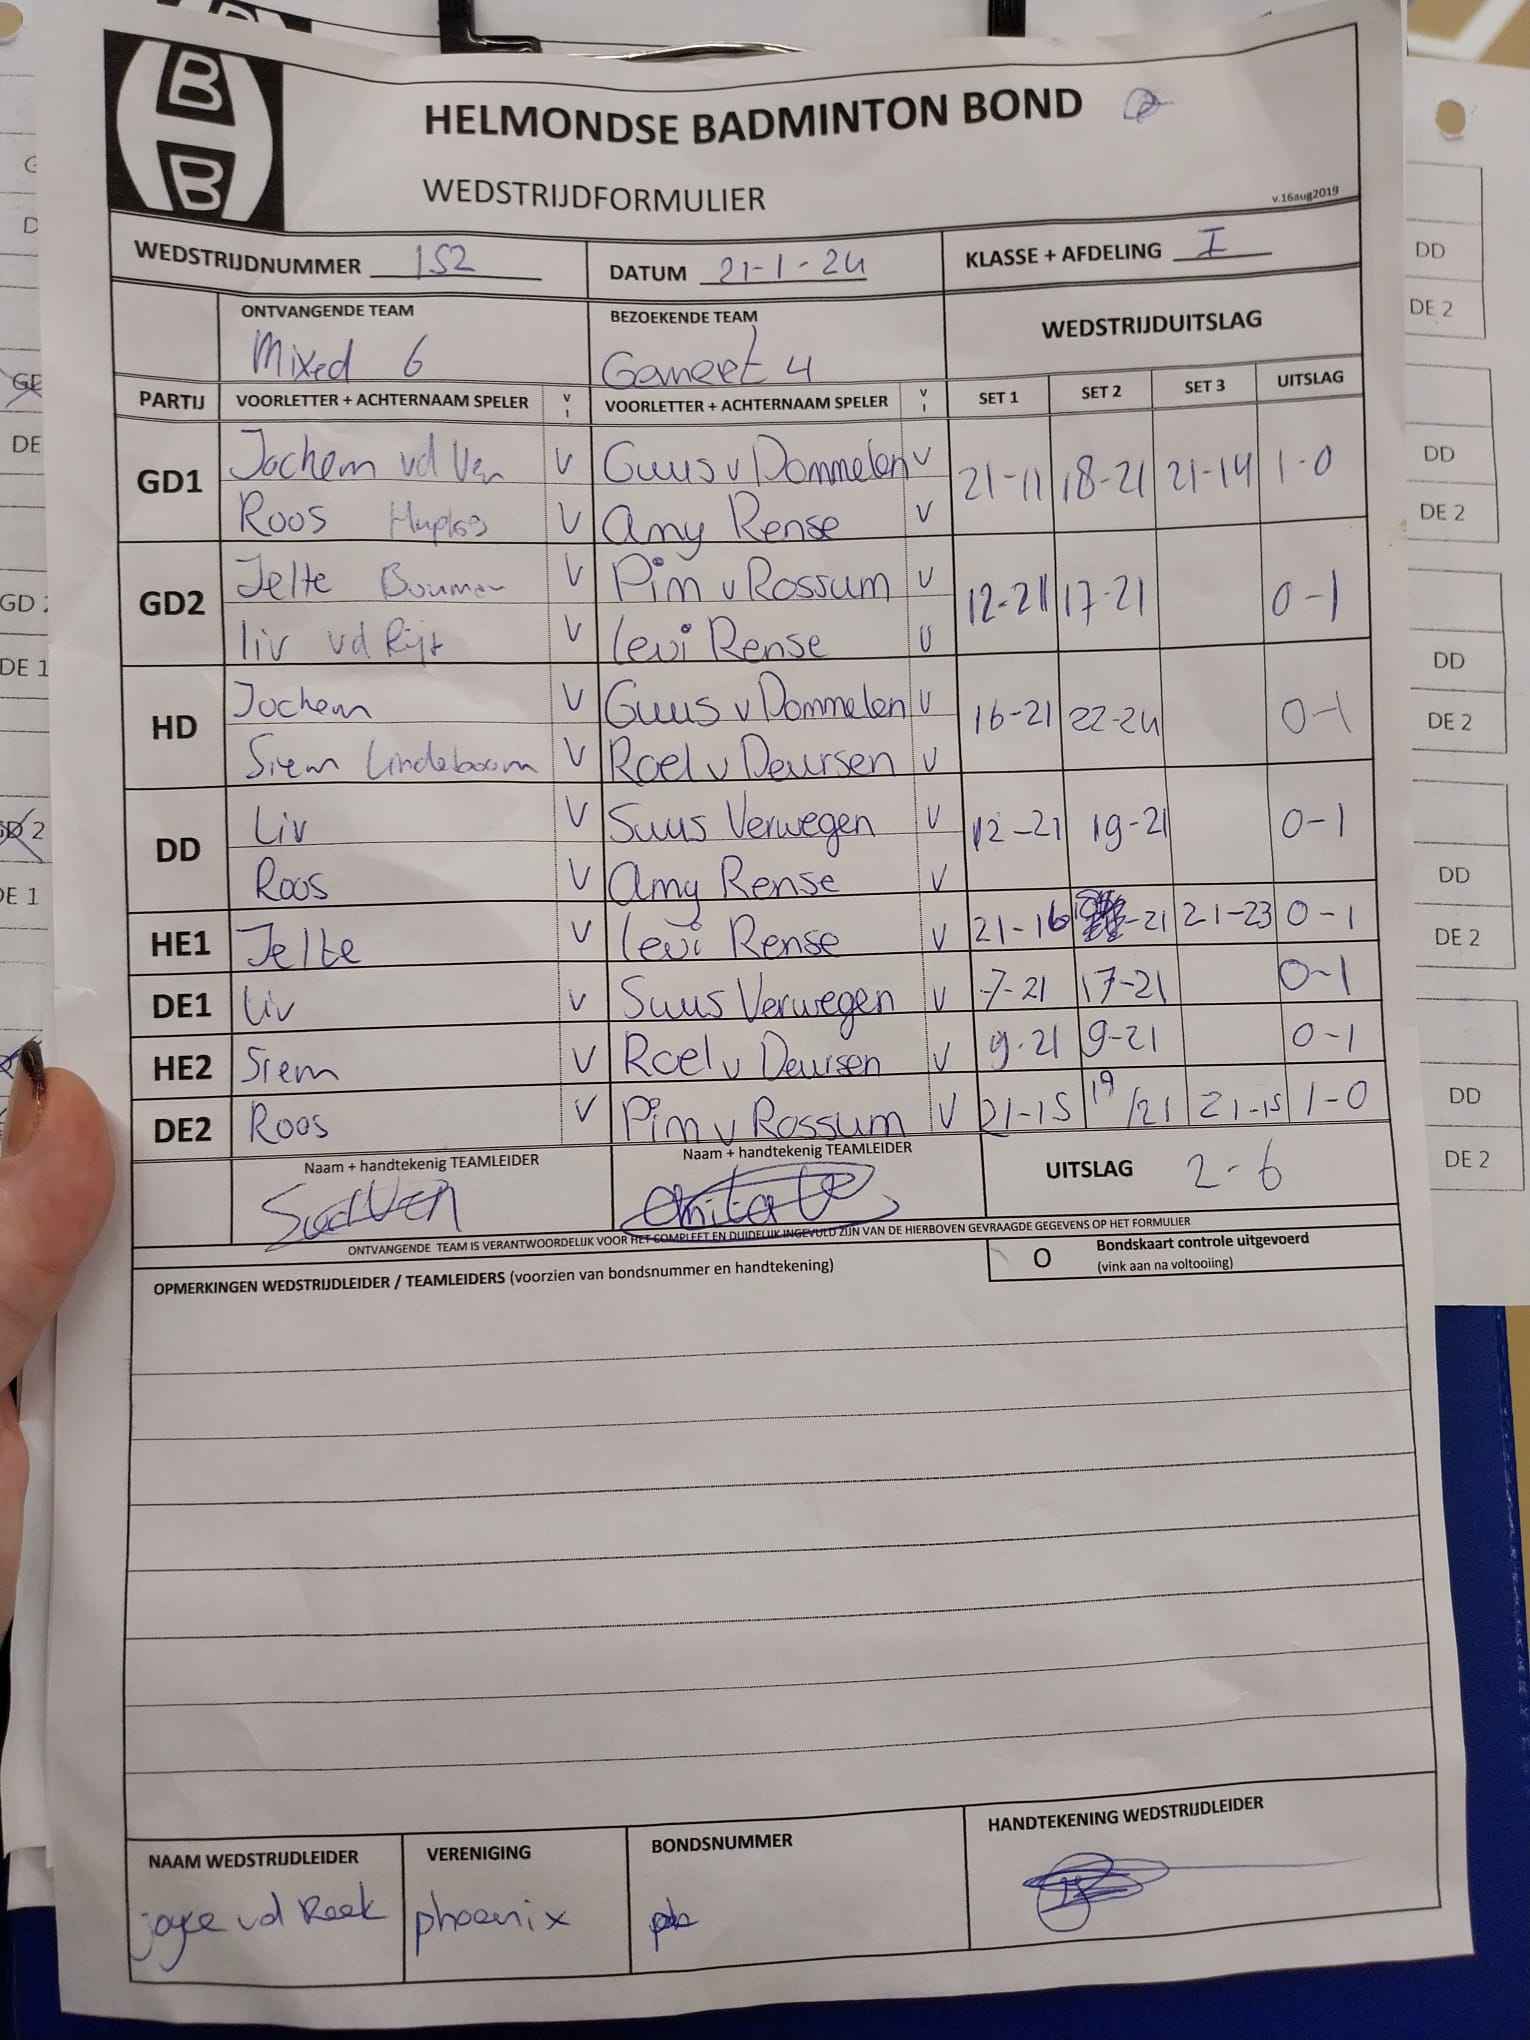 HELMONDSE BADMINTON BOND
WEDSTRIJDFORMULIER
v.16aug2019
WEDSTRIJDNUMMER 152 DATUM 21-1-24 KLASSE + AFDELING I
ONTVANGENDE TEAM BEZOEKENDE TEAM WEDSTRIJDUITSLAG
Mixed 6 Gemert 4
PARTIJ VOORLETTER + ACHTERNAAM SPELER V I VOORLETTER + ACHTERNAAM SPELER V I SET 1 SET 2 SET 3 UITSLAG
GD1 Jochem vd Ven V Guus v Dommelen V 21-11 18-21 21-14 1-0
Roos V Amy Rense V
GD2 Jelte Bouman V Pim v Rossum V 12-21 17-21 0-1
liv vd Rijt V Levi Rense V
HD Jochem V Guus v Dommelen V 16-21 22-24 0-1
Siem Lindeboom V Roel v Deursen V
DD Liv V Suus Verwegen V 12-21 19-21 0-1
Roos V Amy Rense V
HE1 Jelte V Levi Rense V 21-16 -21 21-23 0-1
DE1 Liv V Suus Verwegen V 7-21 17-21 0-1
HE2 Siem V Roel v Deursen V 9-21 9-21 0-1
DE2 Roos V Pim v Rossum V 21-15 19/21 21-15 1-0
Naam + handtekenig TEAMLEIDER Naam + handtekenig TEAMLEIDER UITSLAG 2-6
ONTVANGENDE TEAM IS VERANTWOORDELIJK VOOR HET COMPLEET EN DUIDELIJK INGEVULD ZIJN VAN DE HIERBOVEN GEVRAAGDE GEGEVENS OP HET FORMULIER
OPMERKINGEN WEDSTRIJDLEIDER / TEAMLEIDERS (voorzien van bondsnummer en handtekening)
O Bondskaart controle uitgevoerd
(vink aan na voltooiing)
NAAM WEDSTRIJDLEIDER VERENIGING BONDSNUMMER HANDTEKENING WEDSTRIJDLEIDER
joyce vd Reek phoenix
DD
DE 2
DD
DE 2
DD
DE 2
DD
DE 2
DD
DE 2